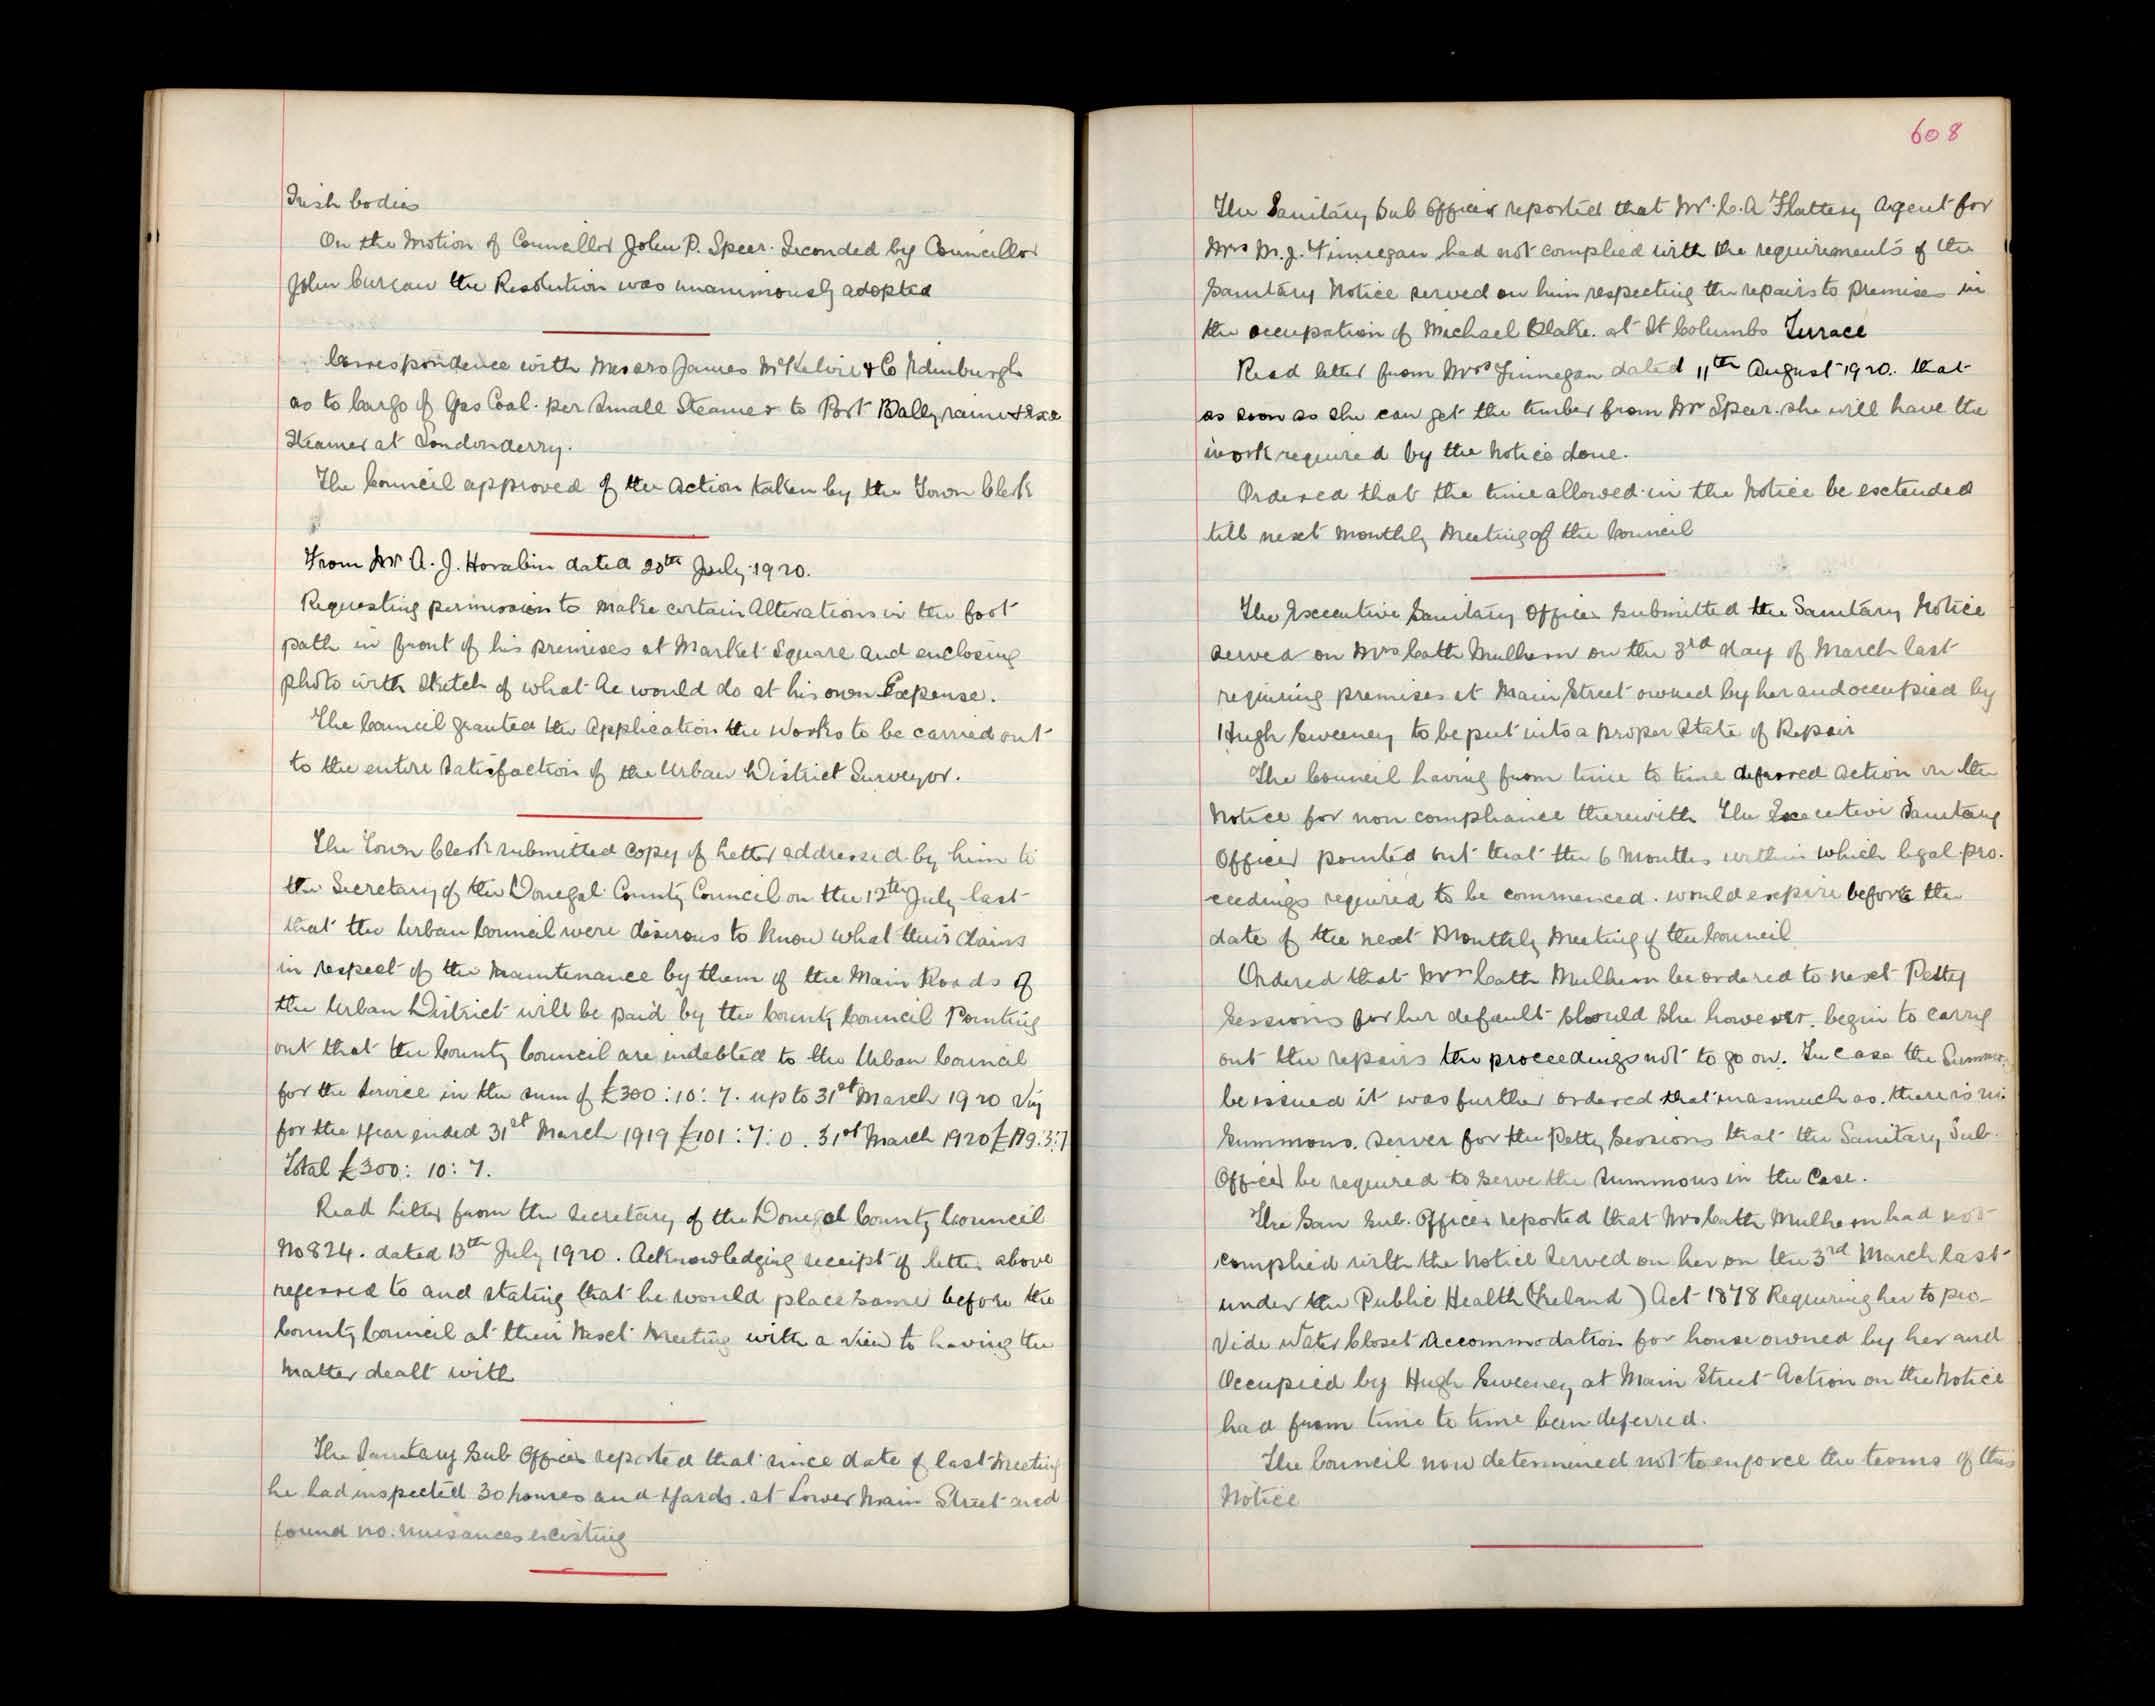 Irish bodies
On the Motion of Councillor John P. Speer. Seconded by Councillor
John Curran the Resolution was unanimously adopted
Correspondence with Messrs James McKelvie & Co Edinburgh
as to Cargo of Gas Coal. per Small Steamer to Port Ballyraine &
Steamer at Londonderry.
The Council approved of the Action taken by the Town Clerk
From Mr A. J. Horabin dated 20th July 1920.
Requesting permission to make certain Alterations in the foot
path in front of his premises at Market Square and enclosing
photo with sketch of what he would do at his own Expense.
The Council granted the Application the works to be carried out
to the entire satisfaction of the Urban District Surveyor.
The Town Clerk submitted copy of letter addressed by him to
the Secretary of the Donegal County Council on the 12th July last
that the Urban Council were desirous to know what their claims
in respect of the Maintenance by them of the Main Roads of
the Urban District will be paid by the County Council Pointing
out that the County Council are indebted to the Urban Council
for the service in the sum of £300:10:7. up to 31st March 1920 Viz
for the Year ended 31st March 1919 £101:7:0. 31st March 1920 £199:3:7
Total £300:10:7.
Read letter from the Secretary of the Donegal County Council
No 824. dated 13th July 1920. Acknowledging receipt of letter above
referred to and stating that he would place same before the
County Council at their Next Meeting with a view to having the
Matter dealt with
The Sanitary Sub Officer reported that since date of last Meeting
he had inspected 30 houses and Yards. at Lower Main Street and
found no. nuisances existing
608
The Sanitary Sub Officer reported that Mr. C. A Flattery Agent for
Mrs M. J. Finnegan had not complied with the requirements of the
Sanitary Notice served on him respecting the repairs to premises in
the occupation of Michael Blake. at St Columbs Terrace
Read letter from Mrs Finnegan dated 11th August 1920. that
as soon as she can get the timber from Mr Speer. she will have the
work required by the Notice done.
Ordered that the time allowed in the Notice be extended
till next Monthly Meeting of the Council
The Executive Sanitary Officer submitted the Sanitary Notice
served on Mrs Cath Mulhern on the 3rd day of March last
requiring premises at Main Street owned by her and occupied by
Hugh Sweeney to be put into a proper state of Repair
The Council having from time to time deferred action on the
Notice for non compliance therewith The Executive Sanitary
Officer pointed out that the 6 Months within which legal pro-
ceedings required to be commenced. would expire before the
date of the next Monthly Meeting of the Council
Ordered that Mrs Cath Mulhern be ordered to next Petty
Sessions for her default should she however. begin to carry
out the repairs the proceedings not to go on. In case the Summons
be issued it was further ordered that inasmuch as. there is no
Summons. Server for the Petty Sessions that the Sanitary Sub.
Officer be required to serve the summons in the case.
The San Sub. Officer reported that Mrs Cath Mulhern had not
complied with the Notice served on her on the 3rd March last
under the Public Health (Ireland) Act 1878 Requiring her to pro-
vide Water Closet Accommodation for house owned by her and
Occupied by Hugh Sweeney at Main Street Action on the Notice
had from time to time been deferred.
The Council now determined not to enforce the terms of this
Notice